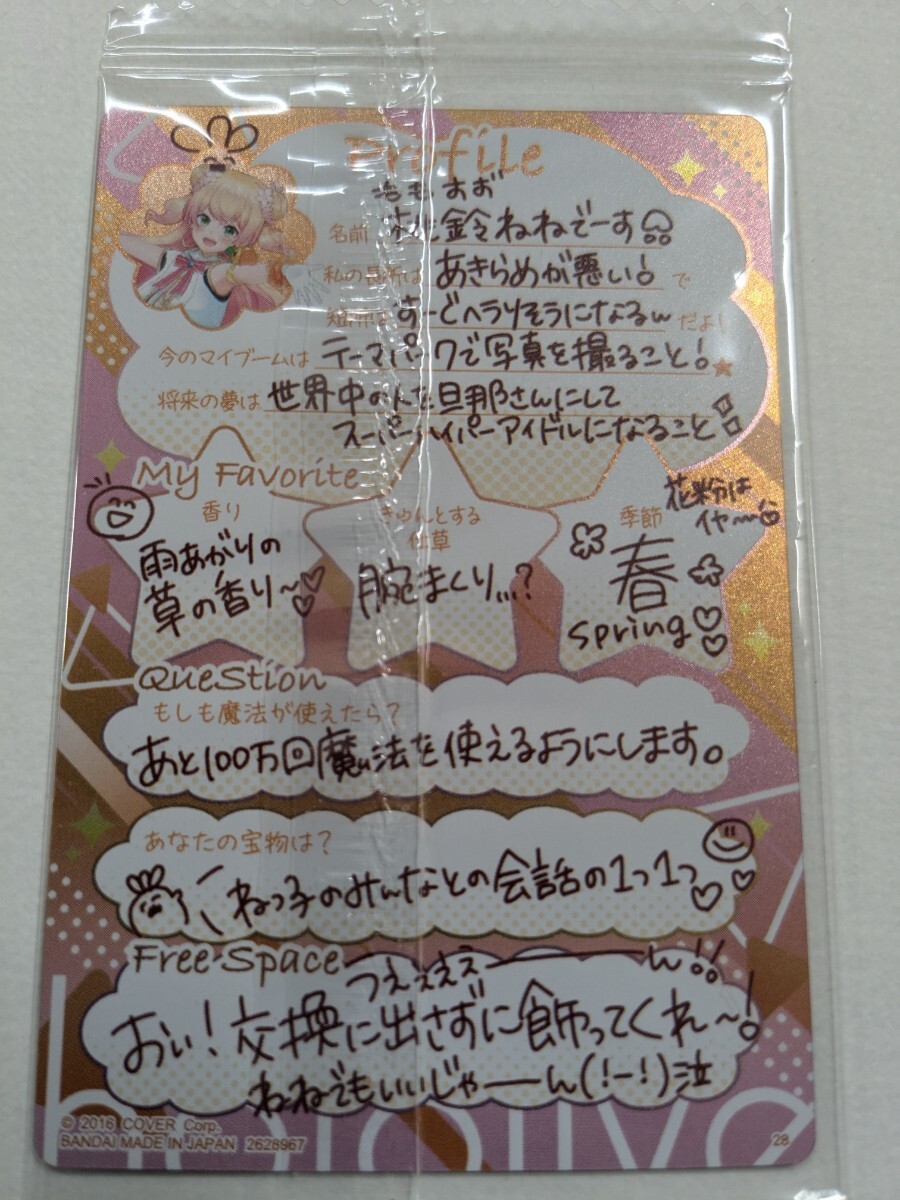 Profile
ももすず
名前 桃鈴ねねでーす
私の長所は あきらめが悪い! で
短所は すーどヘラりそうになるw だよ!
今のマイブームは テーマパークで写真を撮ること!
将来の夢は 世界中の人を旦那さんにして
スーパーハイパーアイドルになること
My Favorite
香り
雨あがりの
草の香り〜♡
きゅんとする
仕草
腕まくり...?
季節
花粉は
イヤ〜
春
Spring♡
Question
もしも魔法が使えたら?
あと100万回魔法を使えるようにします。
あなたの宝物は?
ねっ子のみんなとの会話の1つ1つ♡♡
Free Space
うぇぇぇぇーーーん!!
おい!交換に出さずに飾ってくれ〜!
ねねでもいいじゃーーん(!-!)泣
hololive
© 2016 COVER Corp.
BANDAI MADE IN JAPAN 2628967
28